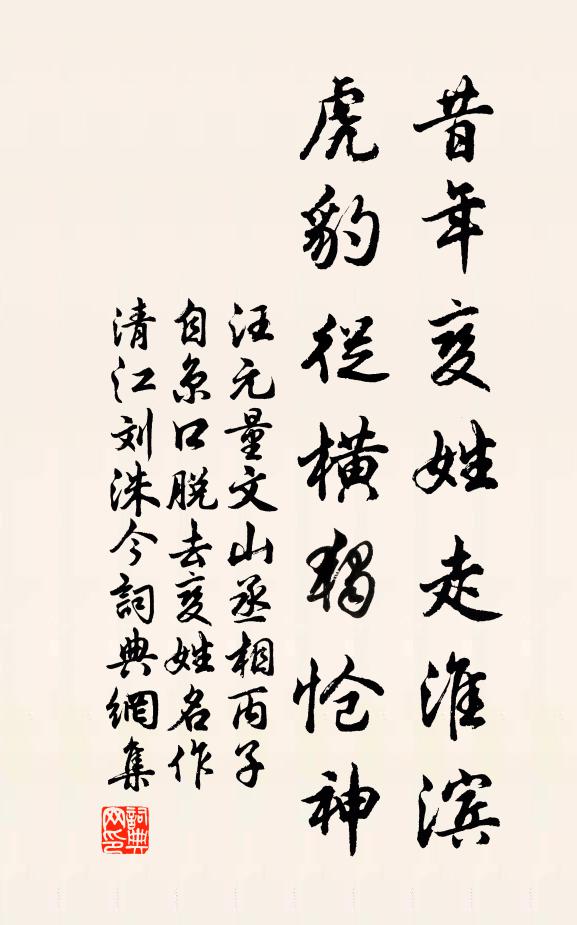 昔年变姓走淮滨
虎豹從横獨怆神
汪元量文山丞相丙子
自京口脱去变姓名作
清江刘洙今詞典網集
詞典网印